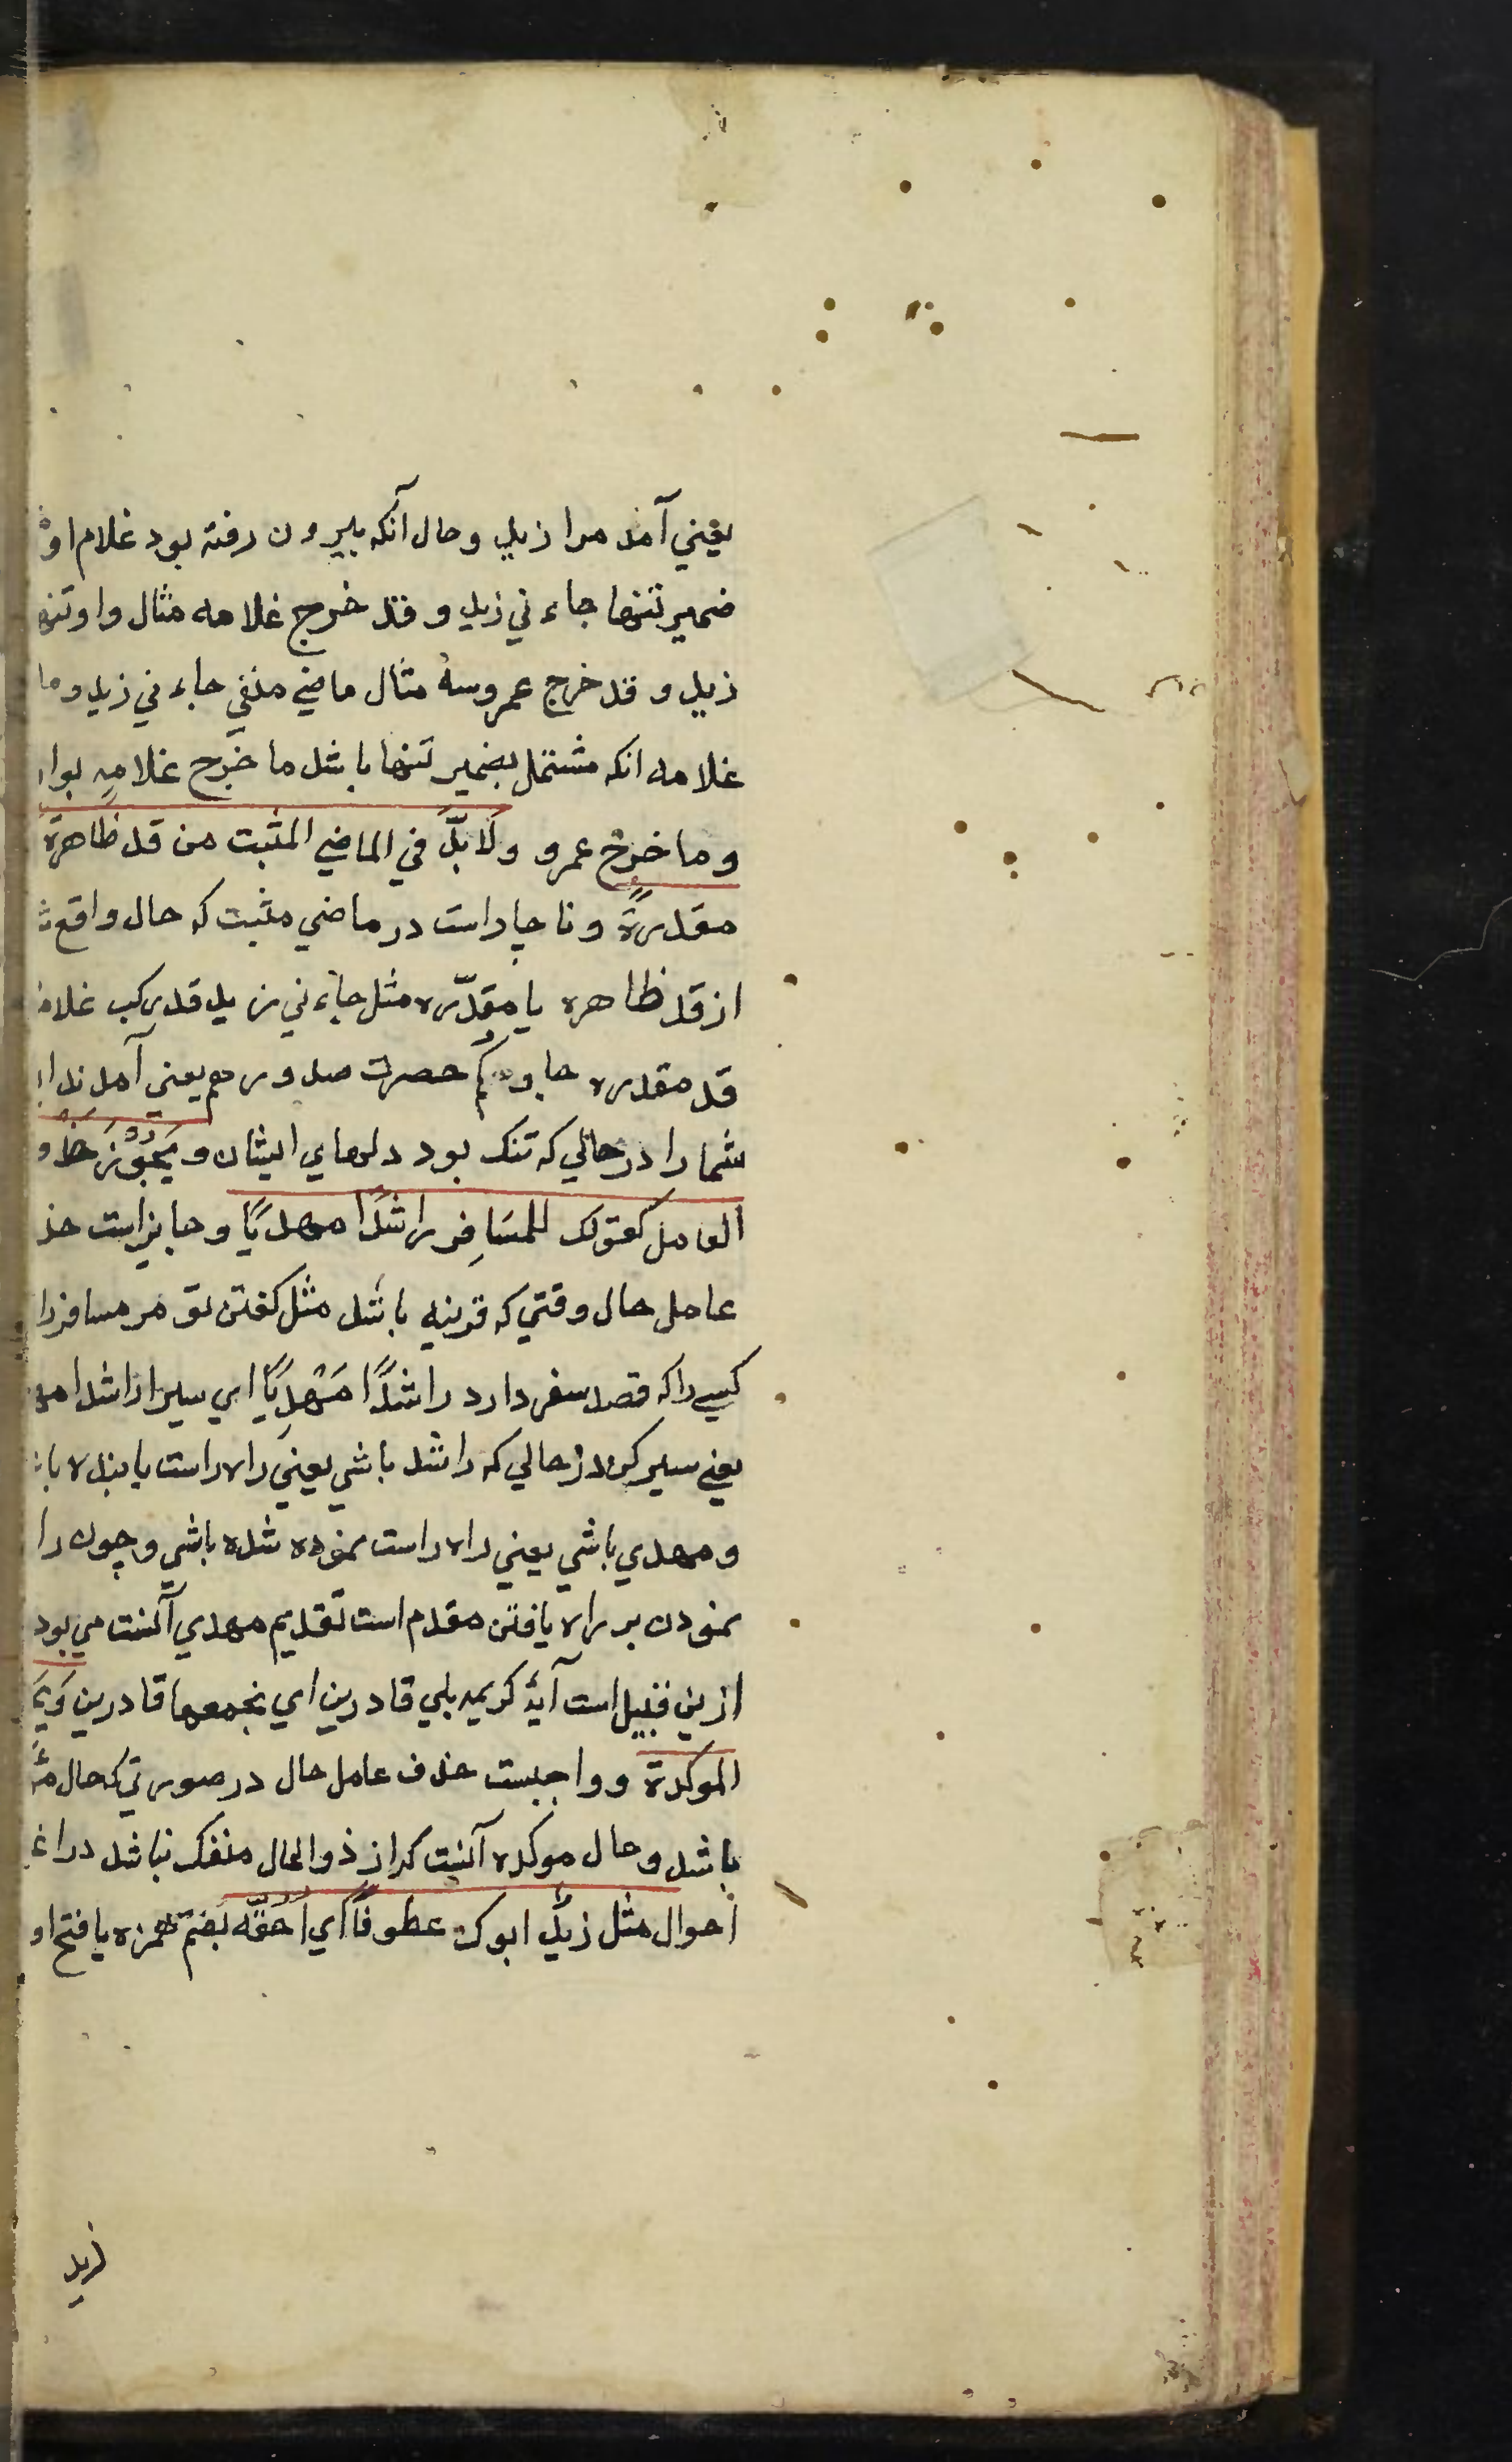 یعني آمد مرا زید وحال آنکه بیرون رفته بود غلام او
ضمیر تنها جاءني زید و قد خرج غلامه مثال واو تنها
زید و قد خرج عمروسه مثال ماضي منفي جاءني زید وما
غلامه انکه مشتمل بضمیر تنها باشد ما خرج غلامه بوا
وما خرج عمرو ولا بدّ في الماضي المثبت من قد ظاهرة
مقدرةً وناچاراست در ماضي مثبت که حال واقع
از قد ظاهره یا مقدّره مثل جاءني زید قد رکب غلا
قد مقدره جاوکم حصرت صدورهم یعني آمدند
شما را در حالي که تنک بود دلهاي ایشان و یَجُوْزُ حَذْ
العامل کقولک للمسَافِر راشدًا مهدیًا وجایزاست حذ
عامل حال وقتي که قرینه باشد مثل کفتن تو مر مسافررا
کسے را که قصد سفر دارد راشدًا مَهْدِیًا اي سیر راشدا
یعنے سیر کن در حالي که راشد باشي یعني راه راست یابنده با
ومهدي باشي یعني راه راست نموده شده باشي وچون را
نمودن بر راه یافتن مقدم است تقدیم مهدي آنست مي بود
ازین قبیل است آیهٔ کریمه بلي قادرین اي نجمعها قادرین وَیَ
الموکدة وواجبست حذف عامل حال در صورتي که حال
باشد وحال موکده آنست که از ذوالحال منفک نباشد در
احوال مثل زیدٌ ابوک عطوفًا اي اُحِقُّه بضم همزه یا فتح او
زید